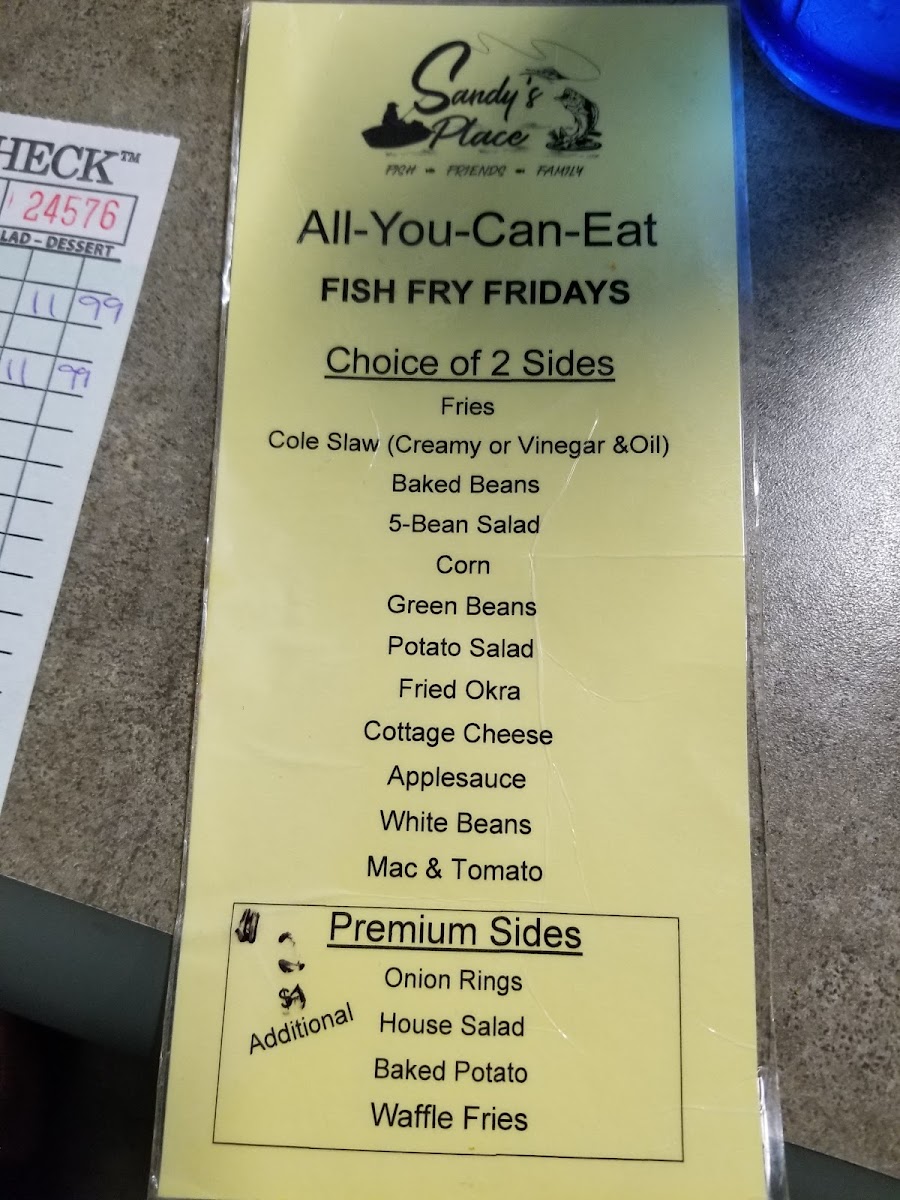 HECK™
24576
LAD - DESSERT
11 99
11 99
Sandy's
Place
FISH - FRIENDS - FAMILY
All-You-Can-Eat
FISH FRY FRIDAYS
Choice of 2 Sides
Fries
Cole Slaw (Creamy or Vinegar &Oil)
Baked Beans
5-Bean Salad
Corn
Green Beans
Potato Salad
Fried Okra
Cottage Cheese
Applesauce
White Beans
Mac & Tomato
Premium Sides
Additional
Onion Rings
House Salad
Baked Potato
Waffle Fries